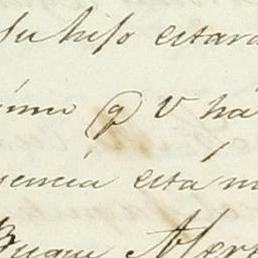 Su hijo estará
imo q V há
encia está m
Buque Mer